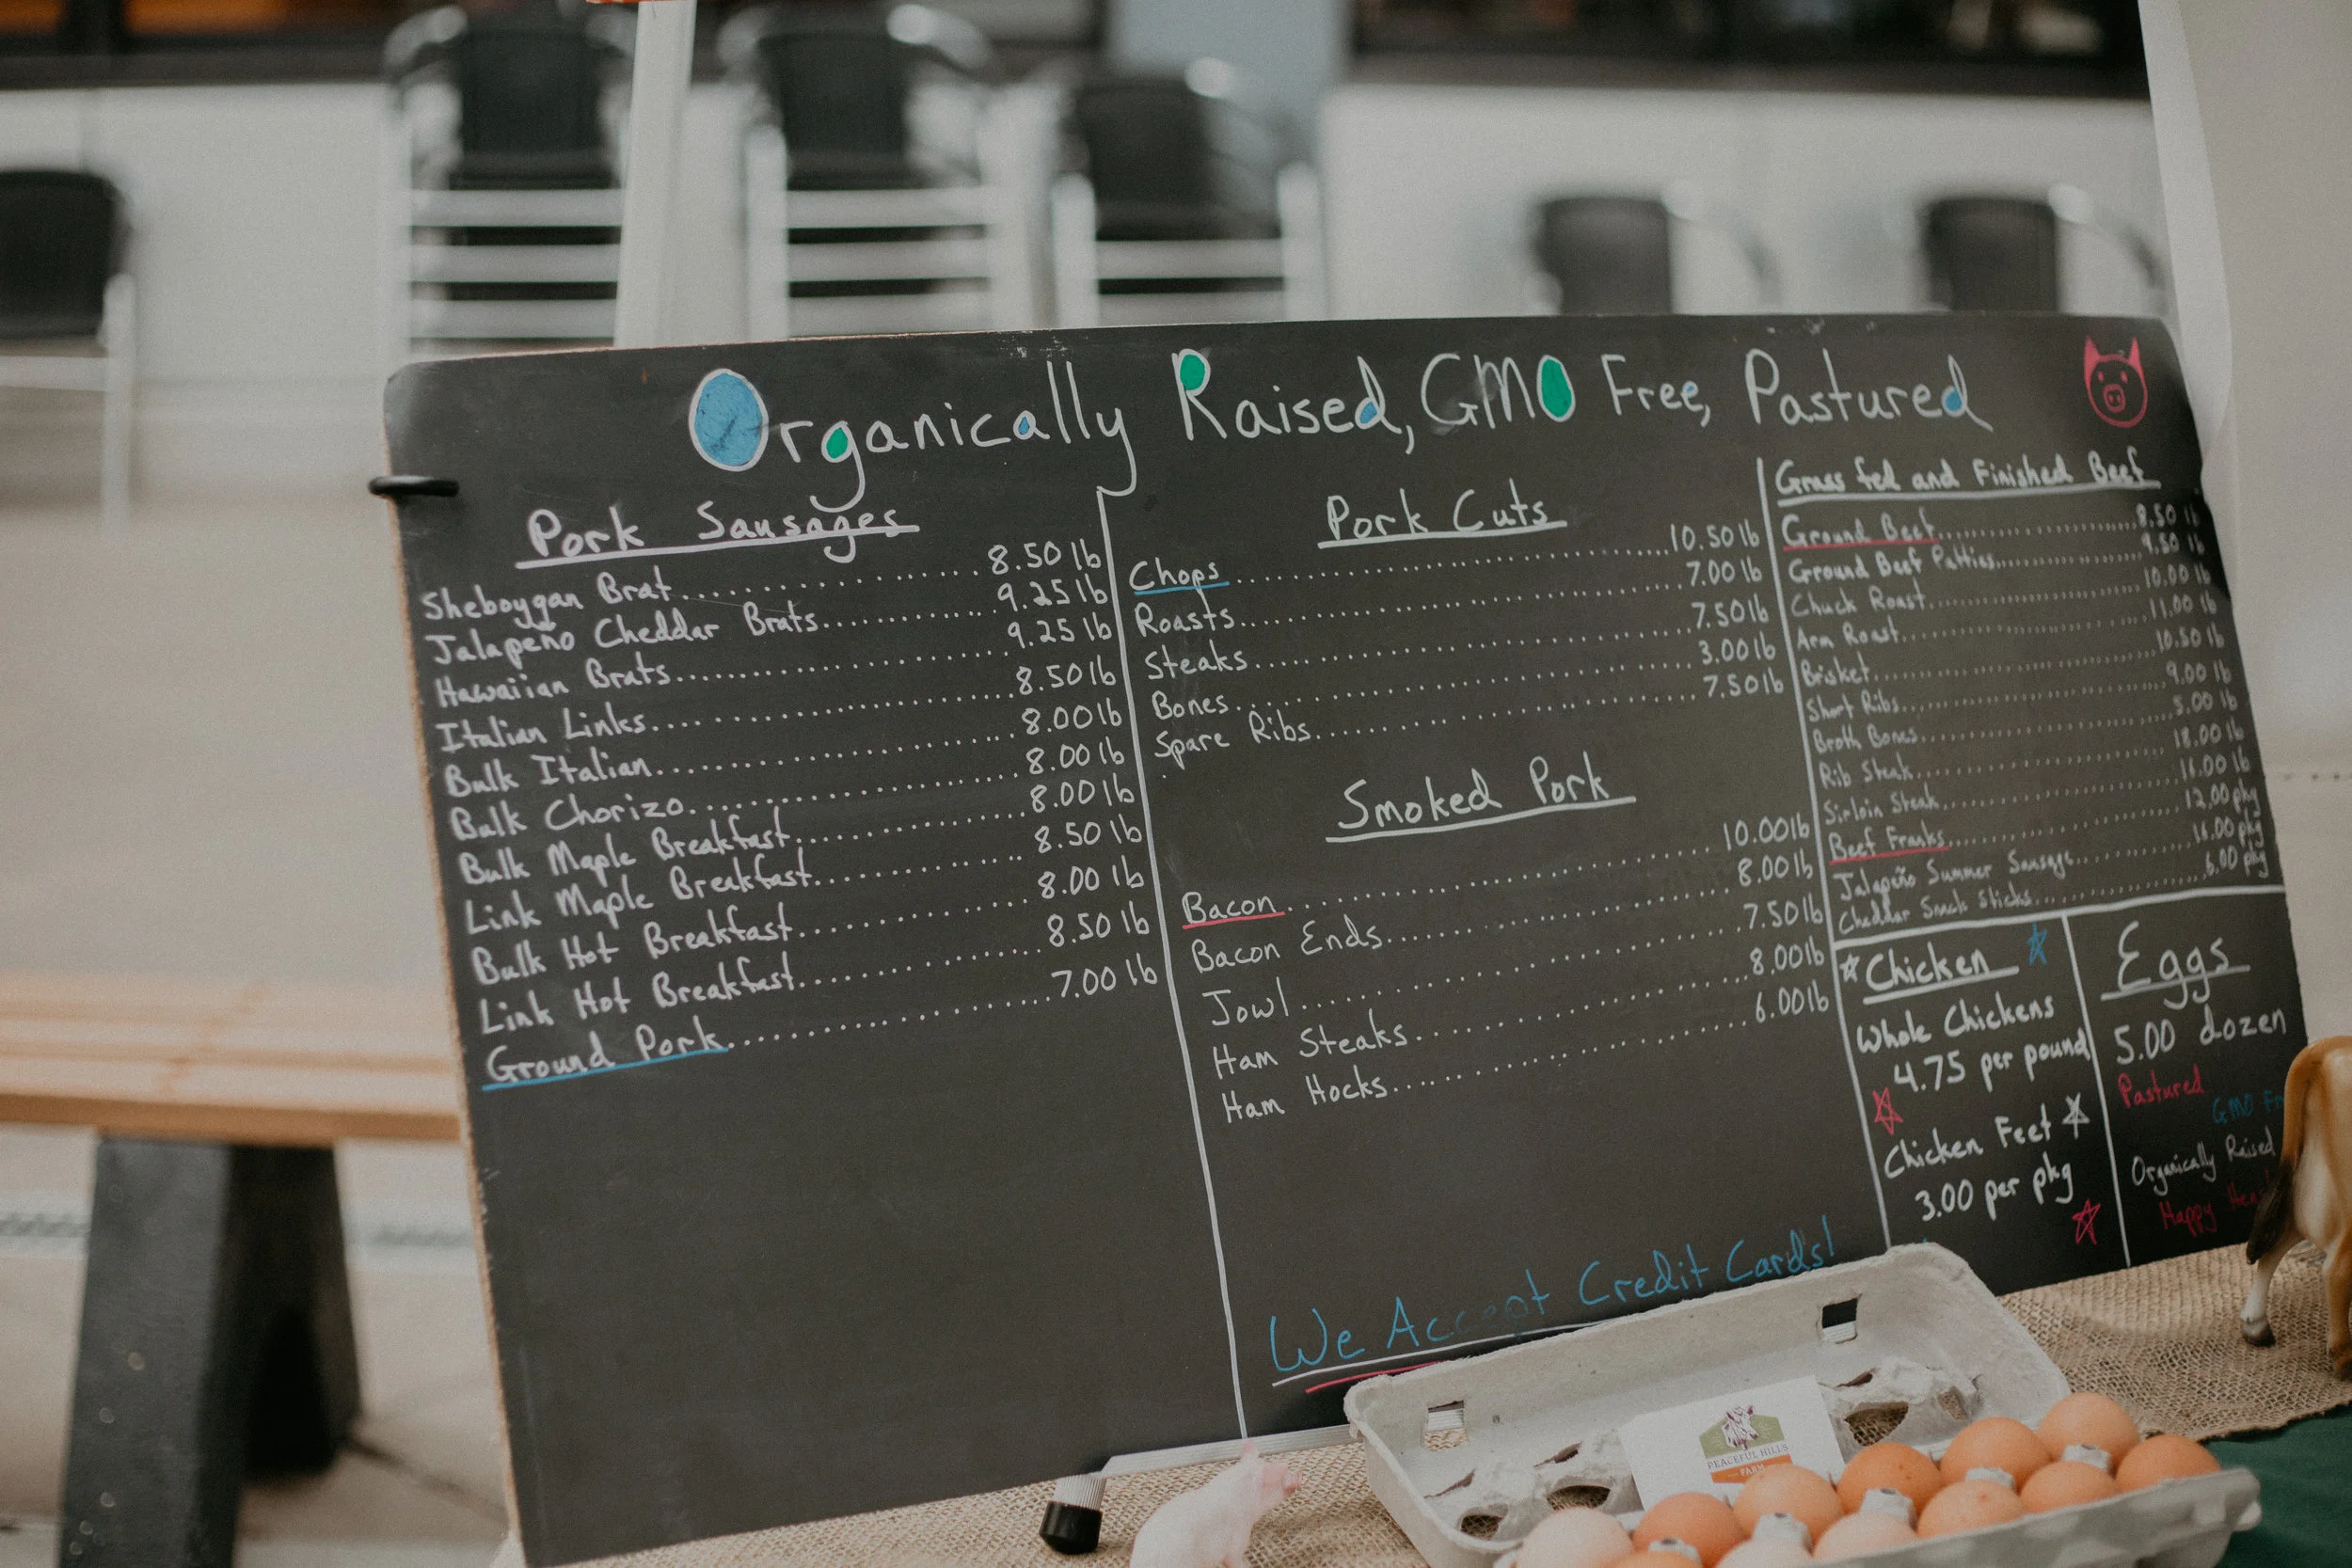 Organically Raised, GMO Free, Pastured
Pork Sausages
Sheboygan Brat.............................8.50 lb
Jalapeño Cheddar Brats..............9.25 lb
Hawaiian Brats...........................9.25 lb
Italian Links.............................8.50 lb
Bulk Italian.............................8.00 lb
Bulk Chorizo...........................8.00 lb
Bulk Maple Breakfast.................8.00 lb
Link Maple Breakfast................8.50 lb
Bulk Hot Breakfast...................8.00 lb
Link Hot Breakfast...................8.50 lb
Ground Pork...........................7.00 lb
Pork Cuts
Chops....................................10.50 lb
Roasts...................................7.00 lb
Steaks...................................7.50 lb
Bones....................................3.00 lb
Spare Ribs..............................7.50 lb
Smoked Pork
Bacon....................................10.00 lb
Bacon Ends.............................8.00 lb
Jowl......................................7.50 lb
Ham Steaks.............................8.00 lb
Ham Hocks..............................6.00 lb
We Accept Credit Cards!
Grass fed and Finished Beef
Ground Beef.............................8.50 lb
Ground Beef Patties...................9.50 lb
Chuck Roast.............................10.00 lb
Arm Roast...............................11.00 lb
Brisket...................................10.50 lb
Short Ribs...............................9.00 lb
Broth Bones.............................5.00 lb
Rib Steak................................18.00 lb
Sirloin Steak............................16.00 lb
Beef Franks.............................12.00 pkg
Jalapeño Summer Sausage............16.00 pkg
Cheddar Snack Sticks..................6.00 pkg
Chicken
Whole Chickens
4.75 per pound
Chicken Feet
3.00 per pkg
Eggs
5.00 dozen
Pastured
GMO Fr
Organically Raised
Happy
PEACEFUL HILLS
FARM